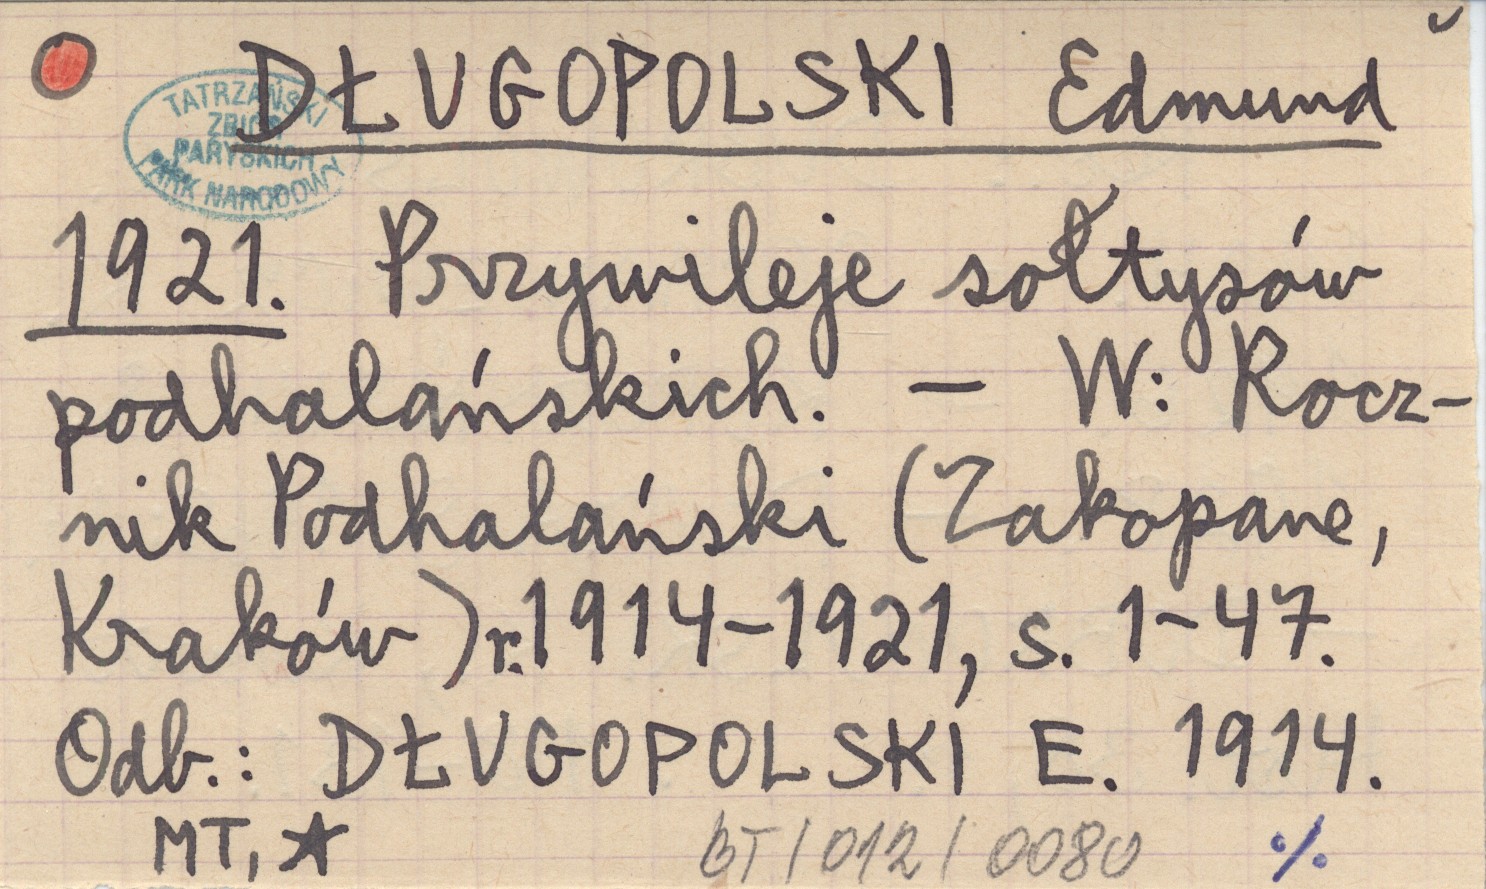 DŁUGOPOLSKI Edmund
TATRZAŃSKI
ZBIÓR
PARYSKICH
PARK NARODOWY
1921. Przywileje sołtysów
podhalańskich. — W: Rocz-
nik Podhalański (Zakopane,
Kraków) r. 1914-1921, s. 1-47.
Odb.: DŁUGOPOLSKI E. 1914.
MT, ★
BT/012/0080 %